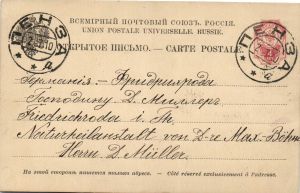 ВСЕМІРНЫЙ ПОЧТОВЫЙ СОЮЗЪ. РОССІЯ.
UNION POSTALE UNIVERSELLE. RUSSIE.
ОТКРЫТОЕ ПИСЬМО. — CARTE POSTALE.
ПЕНЗА
ПЕНЗА
Германія. Фридрихрода
Господину Д. Миллеръ.
Friedrichroda i. Th.
Naturheilanstalt von Dr Max Böhm
Herrn D. Müller.
На этой сторонѣ пишется только адресъ. — Côté réservé exclusivement à l'adresse.